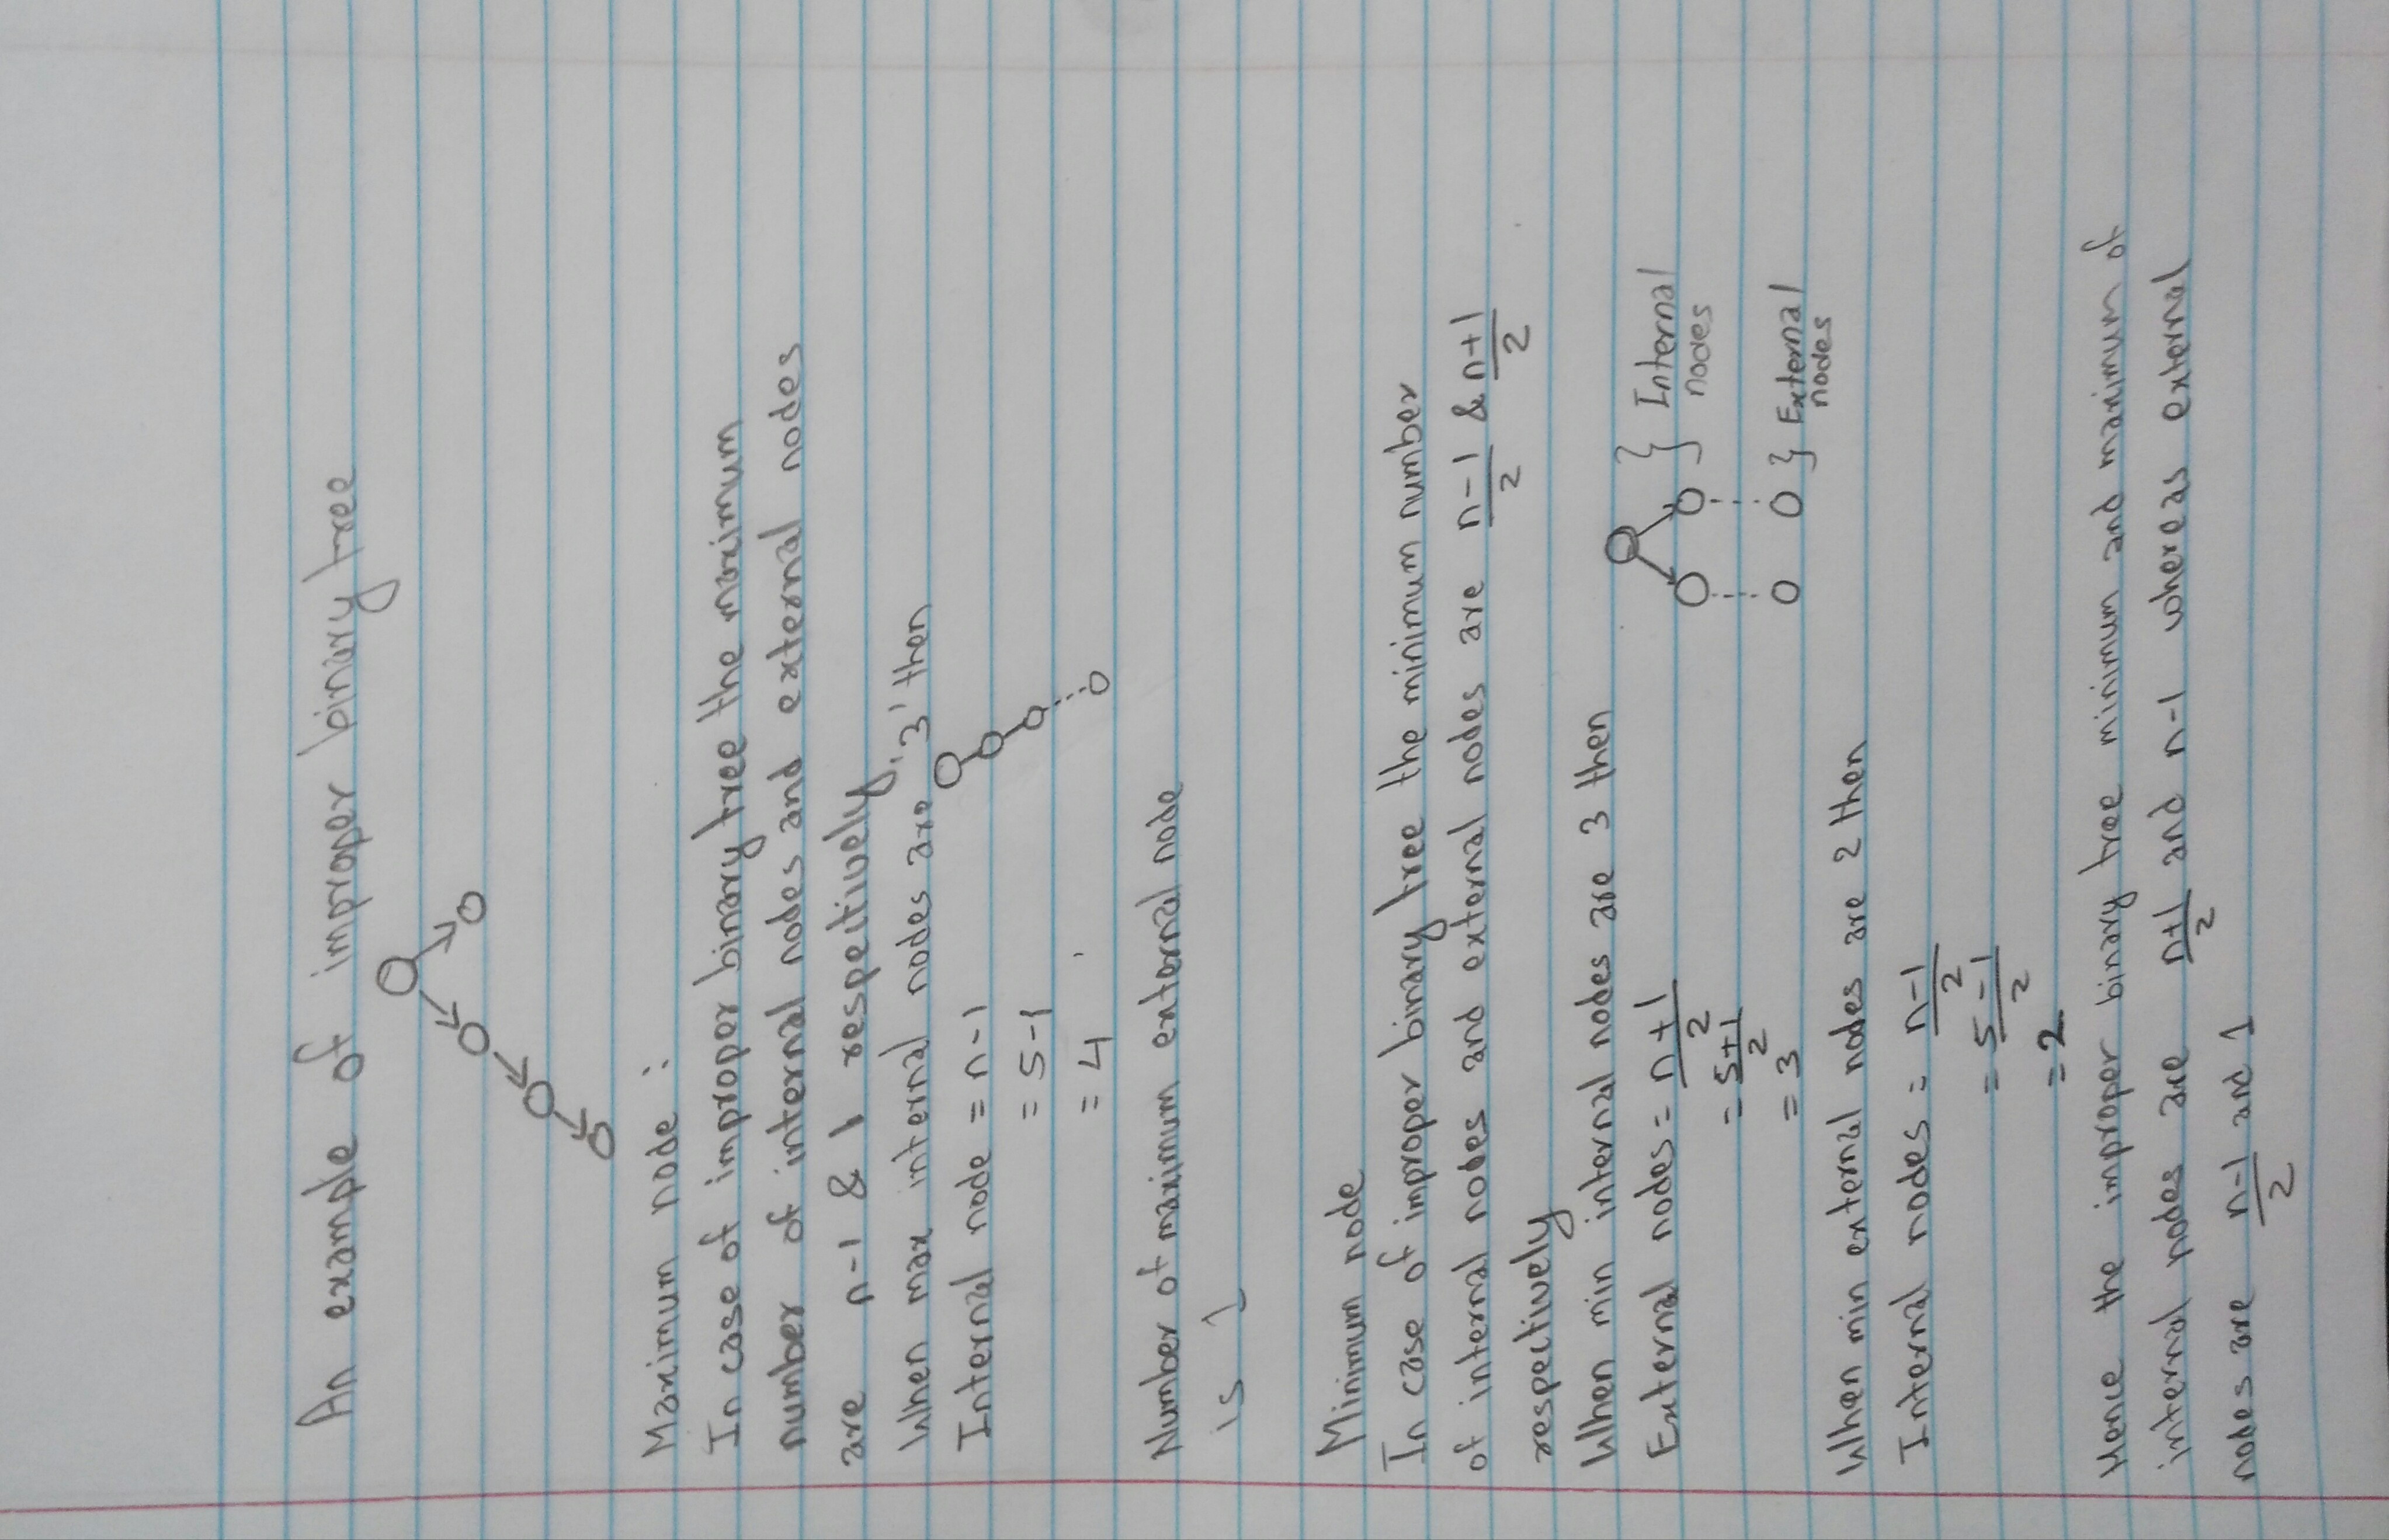 An example of improper binary tree
Maximum node :
In case of improper binary tree the maximum
number of internal nodes and external nodes
are n-1 & 1 respectively
When max internal nodes are '3' then
Internal node = n-1
= 5-1
= 4
Number of maximum external node
is 1
Minimum node
In case of improper binary tree the minimum number
of internal nodes and external nodes are n-1/2 & n+1/2
respectively
When min internal nodes are 3 then
External nodes = n+1/2
= 5+1/2
= 3
Internal
nodes
External
nodes
When min external nodes are 2 then
Internal nodes = n-1/2
= 5-1/2
= 2
Hence the improper binary tree minimum and maximum of
internal nodes are n+1/2 and n-1 whereas external
nodes are n-1/2 and 1